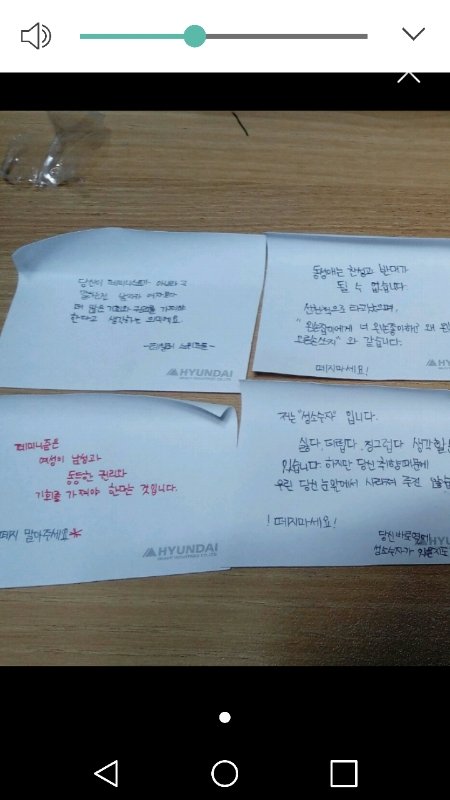 당신이 페미니스트가 아니라고
말하는건 남자가 여자보다
더 많은 기회와 권리를 가져야
한다고 생각하는 의미예요.
-테일러 스위프트-
HYUNDAI
동성애는 찬성과 반대가
될 수 없습니다.
선천적으로 타고났으며,
"왼손잡이에게 너 왜
오른손쓰지" 와 같습니다.
떼지마세요!
페미니즘은
여성이 남성과
동등한 권리와
기회를 가져야 한다는 것입니다.
떼지 말아주세요*
HYUNDAI
저는 "성소수자" 입니다.
싫다, 더럽다, 징그럽다 생각할
있습니다. 하지만 당신 취향때문에
우린 당신 눈앞에서 사라져 주진
! 떼지마세요!
당신 바로 옆에
성소수자가 있을지도